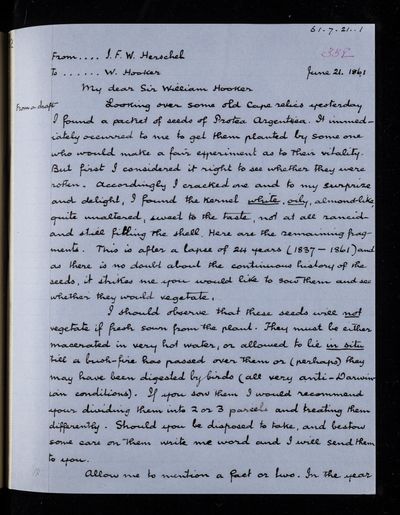 61.7.21..1
From.... J.F.W. Herschel 352
To ...... W. Hooker June 21. 1861
My dear Sir William Hooker
From a draft Looking over some old Cape relics yesterday
I found a packet of seeds of Protea Argentea. It immed-
iately occurred to me to get them planted by some one
who would make a fair experiment as to their vitality.
But first I considered it right to see whether they were
rotten. Accordingly I cracked one and to my surprize
and delight, I found the kernel white, oily, almond-like
quite unaltered, sweet to the taste, not at all rancid-
and still filling the shell. Here are the remaining frag-
ments. This is after a lapse of 24 years (1837-1861) and
as there is no doubt about the continuous history of the
seeds, it strikes me you would like to sow them and see
whether they would vegetate.
I should observe that these seeds will not
vegetate if fresh sown from the plant. They must be either
macerated in very hot water, or allowed to lie in situ
till a bush-fire has passed over them or (perhaps) they
may have been digested by birds (all very anti-Darwin-
ian conditions). If you sow them I would recommend
your dividing them into 2 or 3 parcels and treating them
differently. Should you be disposed to take, and bestow
some care on them write me word and I will send them
to you.
Allow me to mention a fact or two. In the year